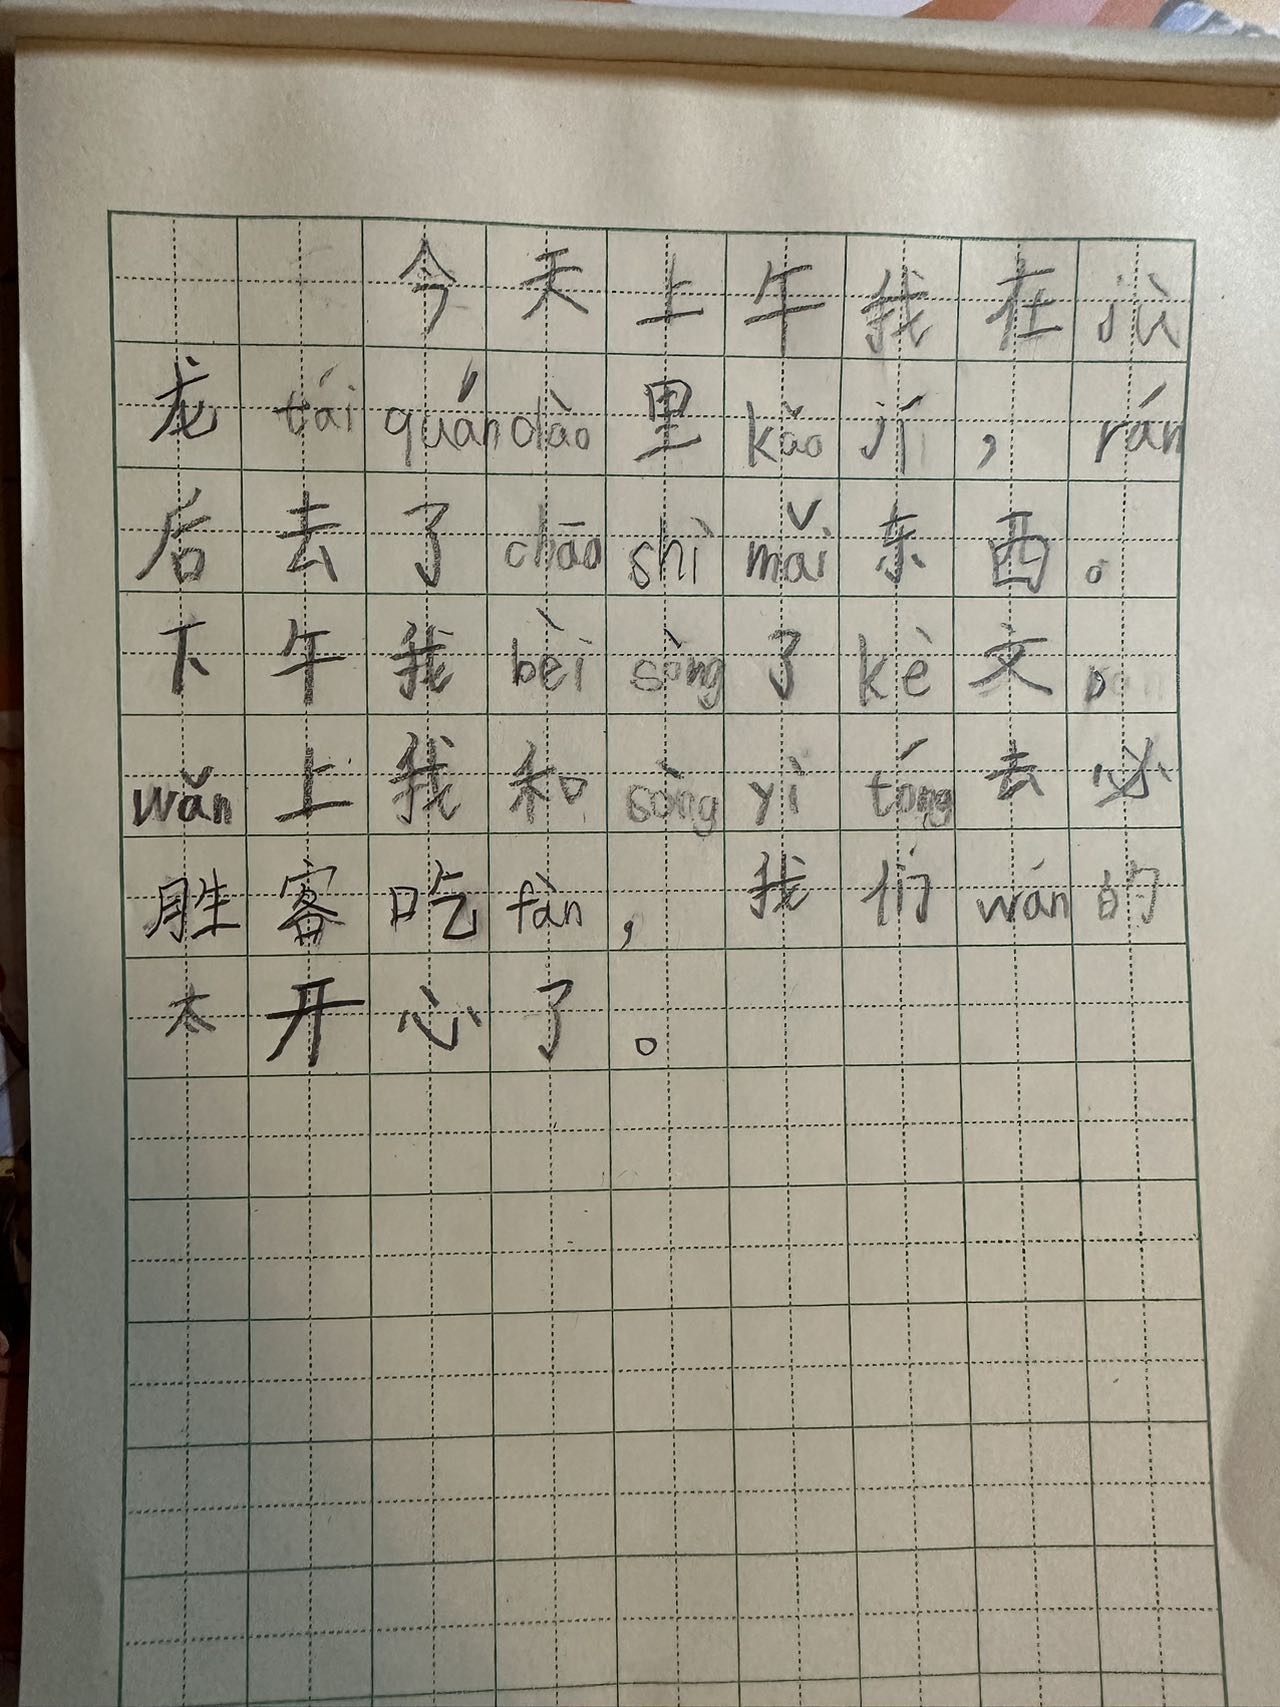 今天上午我在jù
龙tái quán dào里kǎo jí，rán
后去了chāo shì mǎi东西。
下午我bèi sòng了kè文，
wǎn上我和sòng yì tóng去必
胜客吃fàn，我们wán的
太开心了。